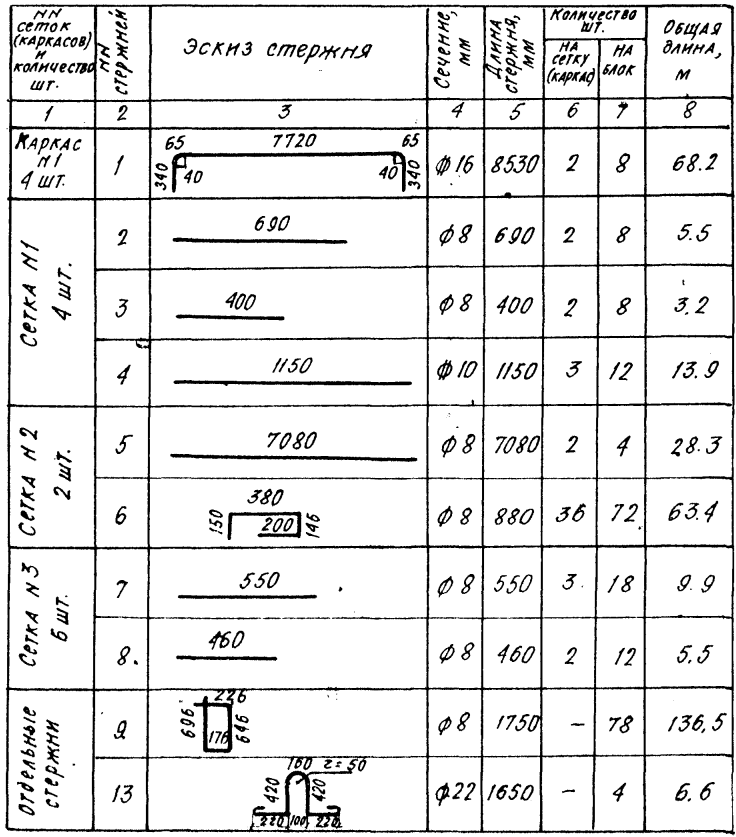 NN сеток (каркасов) и количество шт. | NN стержней | Эскиз стержня | Сечение, мм | Длина стержня, мм | Количество шт. | Общая длина, м
на сетку (каркас) | на блок
1 | 2 | 3 | 4 | 5 | 6 | 7 | 8
Каркас N1 4 шт. | 1 | 65 7720 65 340 40 40 340 | ф16 | 8530 | 2 | 8 | 68.2
Сетка N1 4 шт. | 2 | 690 | ф8 | 690 | 2 | 8 | 5.5
3 | 400 | ф8 | 400 | 2 | 8 | 3.2
4 | 1150 | ф10 | 1150 | 3 | 12 | 13.9
Сетка N2 2 шт. | 5 | 7080 | ф8 | 7080 | 2 | 4 | 28.3
6 | 380 150 200 146 | ф8 | 880 | 36 | 72 | 63.4
Сетка N3 6 шт. | 7 | 550 | ф8 | 550 | 3 | 18 | 9.9
8. | 460 | ф8 | 460 | 2 | 12 | 5.5
Отдельные стержни | 9 | 226 696 176 646 | ф8 | 1750 | – | 78 | 136,5
13 | 160 r=50 420 420 220 100 220 | ф22 | 1650 | – | 4 | 6.6